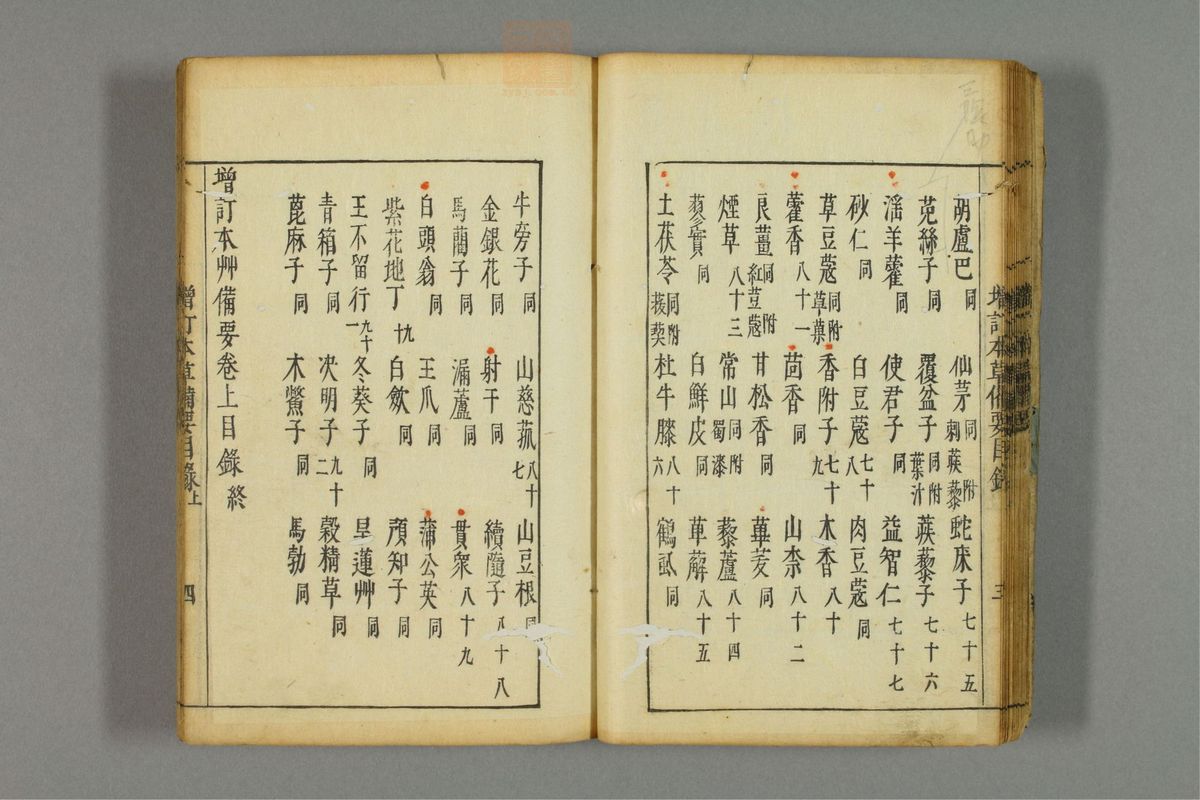 胡盧巴 同 仙茅 同附刺蒺藜 蛇床子 七十五
兔絲子 同 覆盆子 同附葉汁 蒺藜子 七十六
淫羊藿 同 使君子 同 益智仁 七十七
砂仁 同 白豆蔻 七十八 肉豆蔻 同
草豆蔻 同附草菓 香附子 七十九 木香 八十
藿香 八十一 茴香 同 山柰 八十二
良薑 同附紅荳蔻 甘松香 同 蓽茇 同
煙草 八十三 常山 同附蜀漆 藜蘆 八十四
蓼實 同 白鮮皮 同 萆薢 八十五
土茯苓 同附菝葜 杜牛膝 八十六 鶴虱 同
增訂本草備要目錄
三
牛旁子 同 山慈菰 八十七 山豆根 同
金銀花 同 射干 同 續隨子 八十八
馬藺子 同 漏蘆 同 貫衆 八十九
白頭翁 同 王瓜 同 蒲公英 同
紫花地丁 九十 白歛 同 預知子 同
王不留行 九十一 冬葵子 同 旱蓮艸 同
青箱子 同 决明子 九十二 穀精草 同
萞麻子 同 木鱉子 同 馬勃 同
增訂本艸備要卷上目錄終
增訂本草備要目錄上
四